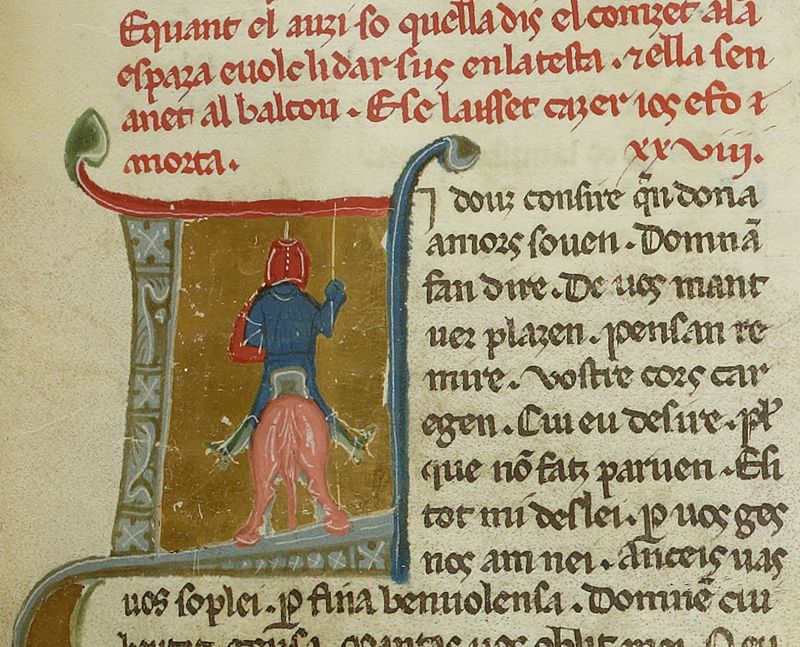 Equant el auzi so quella dis el corezet ala
espaza e uolc li dar sus en la testa . ⁊ ella sen
anet al balcon . E se laisset cazer ios e fo
morta . xxviii.
L i douz consire q̄n dona
amors souen . Domnā
fan dire . De uos mant
uer plazen . pensan re
mire . vostre cors car
egen . Cui eu desire . pl̄
que nō fatz paruen . E si
tot mi deslei . p̱ uos ges
nos am nei . Anceis uas
uos soplei . p̱ fina benuolensa . Domnē cui